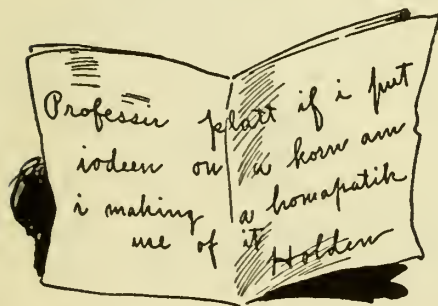 Professer platt if i put
iodeen on a korn am
i making a homapatik
use of it
Holden